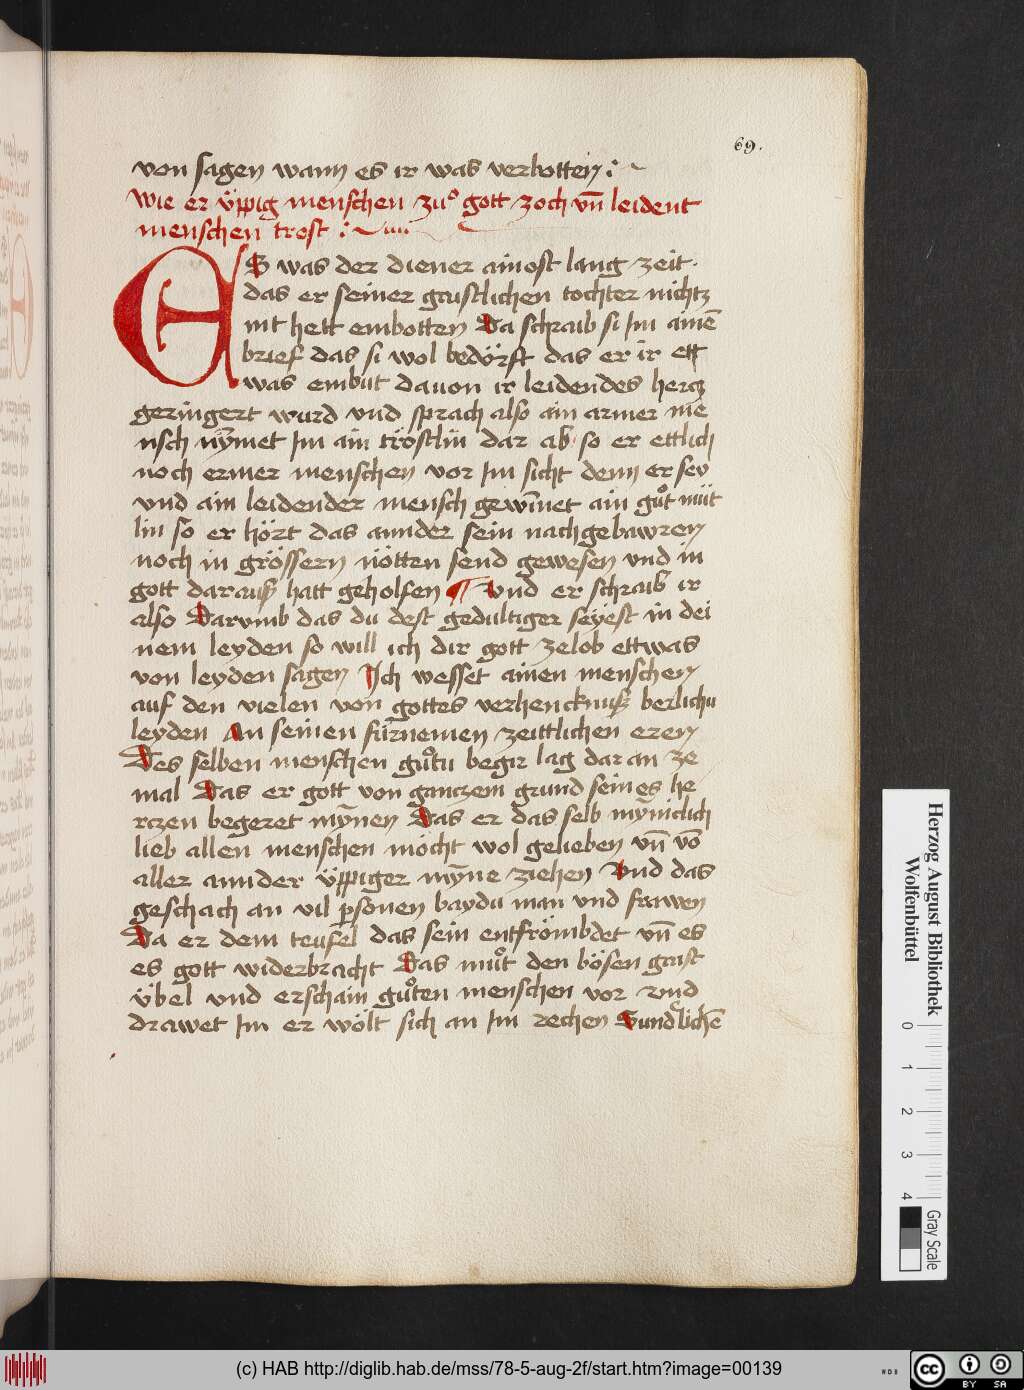 69.
von sagen wann es ir was verbotten :~
Wie er üppig menschen zuͦ gott zoch vn̄ leident
menschen trost :~
ES was der diener ainost lang zeit.
das er seiner gaistlichen tochter nichtz
nit hett embotten Da schraib si Im ainē
brief das si wol bedörft das er ir ett
was embut dauon ir leidendes hercz
geringert wurd vnd sprach also ain armer me
nsch nȳmet Im ain tröstlin dar ab so er ettlich
noch ermer menschen vor Im sicht denn er sey
vnd ain leidender mensch gewīnet ain guͦt müt
lin so er hört das annder sein nachgebawren
noch in grössern nötten send gewesen vnd in
gott darauß hatt geholfen ¶ Vnd er schraib ir
also Darumb das du dest gedultiger seyest in dei
nem leyden so will ich dir gott zelob ettwas
von leyden sagen Ich wesset ainen menschen
auf den vielen von gottes verhencknuß berlichu
leyden An seinen fürnemen zeittlichen eren
Des selben menschen guͦtu begir lag dar an ze
mal Das er gott von ganczem grund seines he
rczen begeret mȳnen Das er das selb mȳniclich
lieb allen menschen möcht wol gelieben vn̄ vō
aller annder üppiger mȳne ziehen Vnd das
geschach an vil psonen baydu man vnd frawen
Da er dem teufel das sein entfrömbdet vn̄ es
es gott widerbracht Das muͦt den bösen gaist
übel vnd erschain guͦten menschen vor vnd
drawet Im er wölt sich an Im rechen Sundlichē
Herzog August Bibliothek
Wolfenbüttel
0 1 2 3 4
Gray Scale
(c) HAB http://diglib.hab.de/mss/78-5-aug-2f/start.htm?image=00139
WDB
cc BY SA